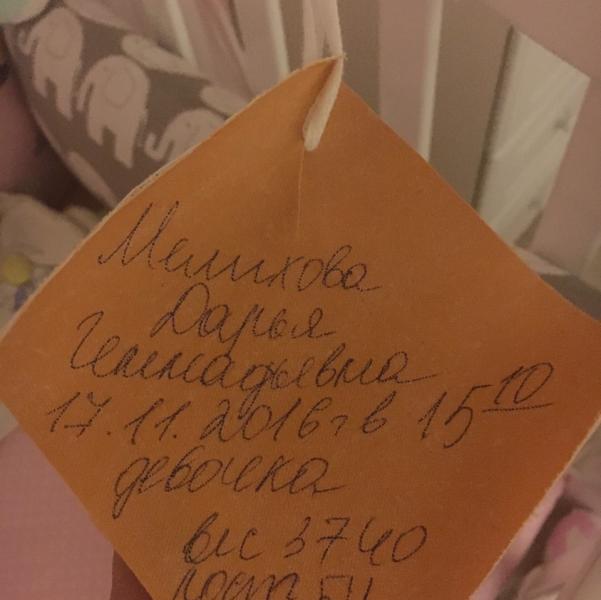 Мелихова
Дарья
Геннадьевна
17.11.2016г в 15 10
девочка
вес 3740
рост 54